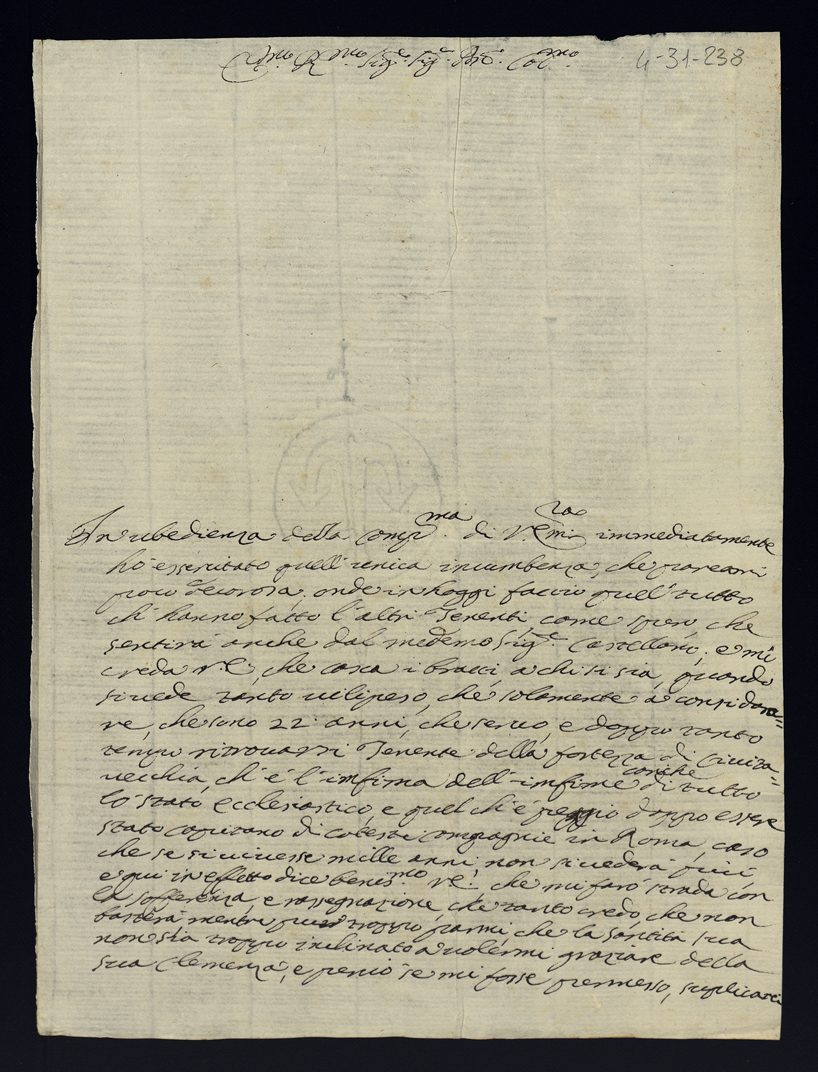 Em.mo R.mo Sig.e Sig.e Pne. Col.mo 4-31-238
In ubedienza della comp.ma di V. Em.za immediatamente
hò essercitato quell'unica incumbenza, che pareami
poco decorosa, onde in hoggi faccio quell tutto
ch'hanno fatto l'altri Tenenti, come spero, che
sentirà anche dal medemo Sig.e Castellano; e mi
creda V.E., che casca i bracci a chi si sia, quando
si vede tanto vilipeso, che solamente a considera=
re, che sono 22 anni, che servo, e doppo tanto
tempo ritrovarsi Tenente della fortezza di Civita=
vecchia, ch'è l'infima dell'infime cariche di tutto
lo stato ecclesiastico, e quel ch'è peggio doppo essere
stato capitano di coteste compagnie in Roma, caso
che se si vivesse mille anni non si vederà più
e qui in effetto dice benis.mo V.E., che mi farò strada con
la sofferenza, e rassegnazione, che tanto credo, che non
basterà mentre pur troppo parmi che la Santità Sua
non sia troppo inclinato a volermi graziare della
sua Clemenza, e perciò se mi fosse permesso, suplicarei